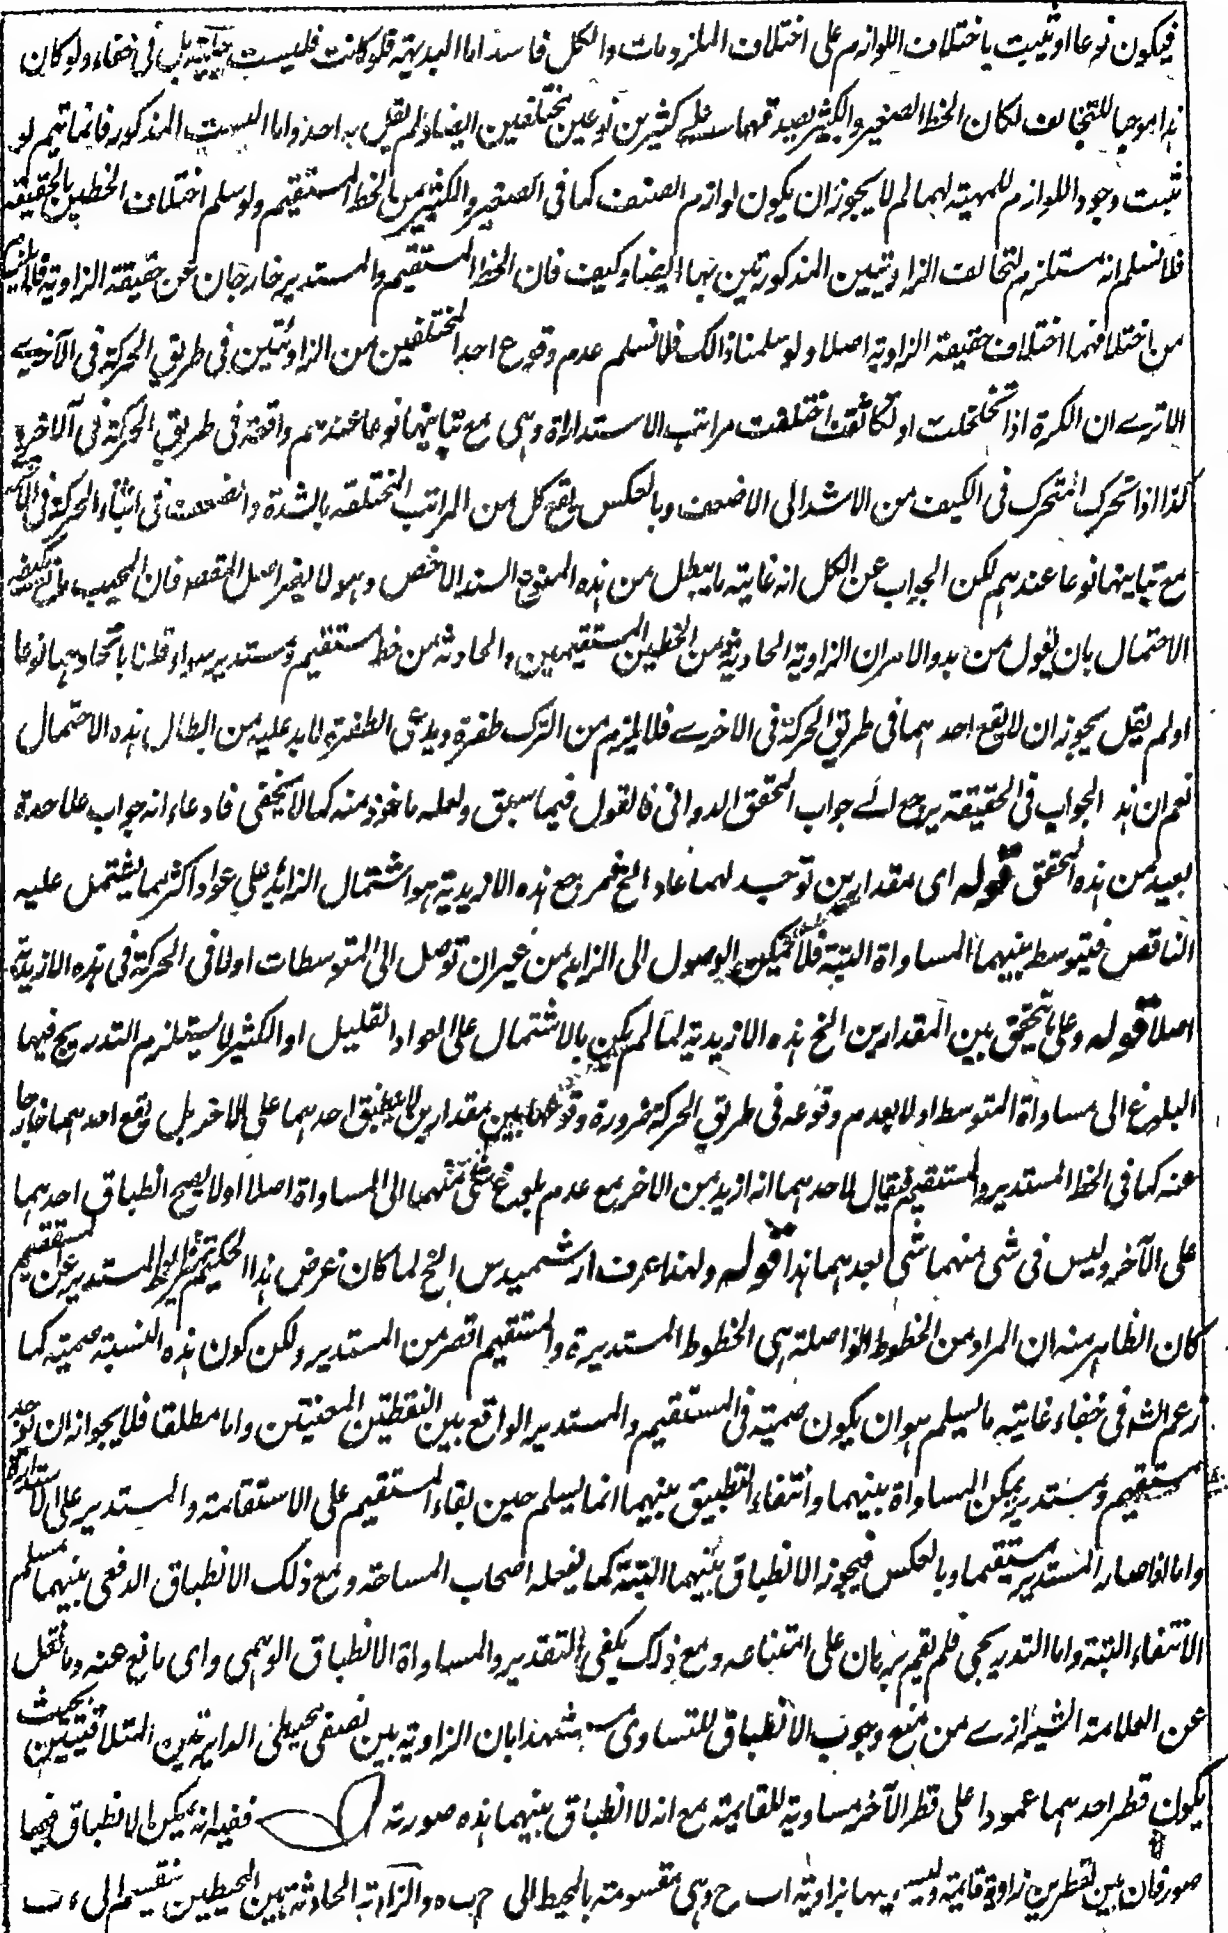 فيكون نوعا او ثبت باختلاف اللوازم على اختلاف الملزومات والكل فاسد اما البديهة فلو كانت فليست بل في خفاء ولو كان
هذا موجبا للتخالف لكان الخط الصغير والكبير بصدقهما على كثيرين نوعين مختلفين ايضا ولم يقل به احد واما المذكورة فانما تتم لو
ثبت وجود اللوازم للمهية لهما لم لا يجوز ان يكون لوازم الصنف كما في الصغير والكبير من الخط المستقيم ولو سلم اختلاف الخطين بالحقيقة
فلا نسلم انه مستلزم لتخالف الزاويتين المذكورتين بها ايضا وكيف فان الخط المستقيم والمستدير خارجان عن حقيقة الزاوية فلا يلزم
من اختلافهما اختلاف حقيقة الزاوية اصلا ولو سلمنا ذالك فلا نسلم عدم وقوع احد المختلفين من الزاويتين في طريق الحركة في الآخر
الا ترے ان الكرة اذا تخلخلت او تكاثفت اختلفت مراتب الاستدارة وهي مع تباينها نوعا عندهم واقعة في طريق الحركة في الآخر
كذا اذا تحرك المتحرك في الكيف من الاشد الى الاضعف وبالعكس يقع كل من المراتب المختلفة بالشدة والضعف في اثناء الحركة في
مع تباينها نوعا عندهم لكن الجواب عن الكل انه غاية ما يبطل من هذه الممنوع السند الاخص وهو لا يضر اصل المقصد فان المجيب
الاحتمال بان يقول من بدو الامر ان الزاوية الحادثة من الخطين المستقيمين والحادثة من خط مستقيم ومستدير سواء قلنا باتحادهما نوعا
او لم يقل يجوز ان لا يقع احدهما في طريق الحركة في الاخرے فلا يلزم من الترك طفرة ويدعى الطفرة لا بد عليه من ابطال هذه الاحتمال
نعم ان هذا الجواب في الحقيقة يرجع الے جواب المحقق الدواني فالقول فيما سبق ولعله ماخوذ منه كما لا يخفى فادعاء انه جواب علاحدة
بعيد من هذه المحقق قوله اى مقدارين توجد لهما عاد الخ فمرجع هذه الازيدية هو اشتمال الزائد على عواد اكثر مما يشتمل عليه
الناقص فيتوسط بينهما المساواة البتة فلا يمكن الوصول الى الزايد من غير ان توصل الى المتوسطات اولا في الحركة في هذه الازيدية
اصلا قوله وعلى ما تحقق بين المقدارين الخ هذه الازيدية لما لم يكن بالاشتمال على العواد القليل او الكثير لا يستلزم التدريج فيها
البلوغ الى مساواة المتوسط اولا بعدم وقوعه في طريق الحركة ضرورة وقوعها بين مقدارين لا ينطبق احدهما على الاخر بل يقع احدهما خارجا
عنه كما في الخط المستدير والمستقيم فيقال لاحدهما انه ازيد من الاخر مع عدم بلوغ شئ منهما الى المساواة اصلا اولا يصح انطباق احدهما
على الآخر وليس في شئ منهما شئ يعدهما هذا قوله ولهذا عرف ارشميدس الخ لما كان غرض هذا الحكيم تمييز الخط المستدير عن المستقيم
كان الظاهر منه ان المراد من الخطوط الواصلة هي الخطوط المستديرة والمستقيم اقصر من المستدير ولكن كون هذه النسبة صمية كما
زعم الشه في خفاء غايته ما يسلم هو ان يكون صمية في المستقيم والمستدير الواقع بين النقطتين المعنيتين واما مطلقا فلا يجوا ان توجد
مستقيم ومستدير يمكن المساواة بينهما وانتفاء التطبيق بينهما انما يسلم حين بقاء المستقيم على الاستقامة والمستدير على الاستدارة
واما اذا صار المستدير مستقيما وبالعكس فيجوز الانطباق بينهما البتة كما يفعله اصحاب المساحة ومع ذلك الانطباق الدفعي بينهما مسلم
الانتفاء البتة واما التدريجي فلم يقم برهان على امتناعه ومع ذلك يكفى التقدير والمساواة الانطباق الوهمى واى مانع عنه وما نقل
عن العلامة الشيرازے من منع وجوب الانطباق للتساوى مستشهدا بان الزاوية بين نصفى محيطى الدايرتين المتلاقيتين بحيث
يكون قطر احدهما عمودا على قطر الآخر مساوية للقايمة مع انه لا انطباق بينهما هذه صورته ففيه انه يمكن الانطباق فيهما
صورة فان بين القطرين زاوية قايمة بزاوية اب ح وهي مقسومة بالمحيط الى ح ب ه والزاوية الحادثة بين المحيطين ينقسم الى